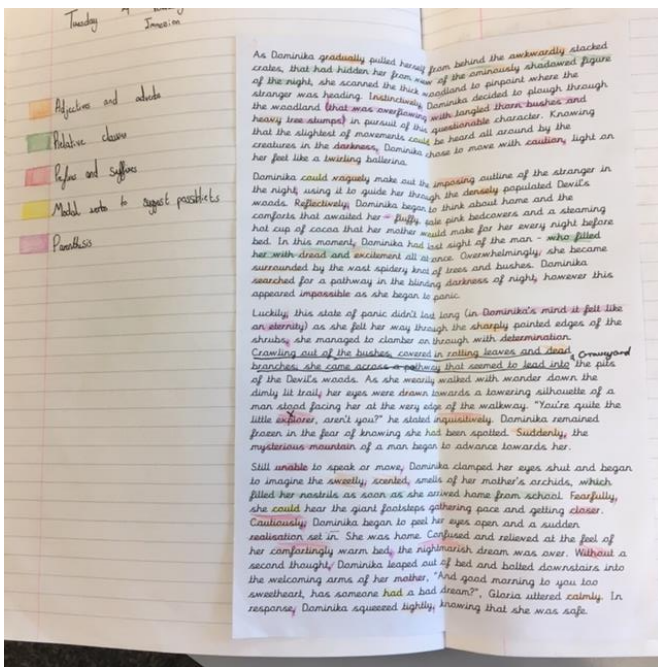 Tuesday 4
Immersion
Adjectives and adverbs
Relative clauses
Prefixes and suffixes
Modal verbs to suggest possibilities
Parenthesis
As Dominika gradually pulled herself from behind the awkwardly stacked
crates, that had hidden her from view of the ominously shadowed figure
of the night, she scanned the thick woodland to pinpoint where the
stranger was heading. Instinctively, Dominika decided to plough through
the woodland (that was overflowing with tangled thorn bushes and
heavy tree stumps) in pursuit of this questionable character. Knowing
that the slightest of movements could be heard all around by the
creatures in the darkness, Dominika chose to move with caution, light on
her feet like a twirling ballerina.
Dominika could vaguely make out the imposing outline of the stranger in
the night, using it to guide her through the densely populated Devil's
woods. Reflectively, Dominika began to think about home and the
comforts that awaited her - fluffy pale pink bedcovers and a steaming
hot cup of cocoa that her mother would make for her every night before
bed. In this moment, Dominika had lost sight of the man - who filled
her with dread and excitement all at once. Overwhelmingly, she became
surrounded by the vast spidery knot of trees and bushes. Dominika
searched for a pathway in the blinding darkness of night, however this
appeared impossible as she began to panic.
Luckily, this state of panic didn't last long (in Dominika's mind it felt like
an eternity) as she felt her way through the sharply pointed edges of the
shrubs, she managed to clamber on through with determination.
Crawling out of the bushes, covered in rotting leaves and dead Graveyard
branches, she came across a pathway that seemed to lead into the pits
of the Devil's woods. As she wearily walked with wonder down the
dimly lit trail, her eyes were drawn towards a towering silhouette of a
man stood facing her at the very edge of the walkway. "You're quite the
little explorer, aren't you?" he stated inquisitively. Dominika remained
frozen in the fear of knowing she had been spotted. Suddenly, the
mysterious mountain of a man began to advance towards her.
Still unable to speak or move, Dominika clamped her eyes shut and began
to imagine the sweetly, scented, smells of her mother's orchids, which
filled her nostrils as soon as she arrived home from school. Fearfully,
she could hear the giant footsteps gathering pace and getting closer.
Cautiously, Dominika began to peel her eyes open and a sudden
realisation set in. She was home. Confused and relieved at the feel of
her comfortingly warm bed, the nightmarish dream was over. Without a
second thought, Dominika leaped out of bed and bolted downstairs into
the welcoming arms of her mother, "And good morning to you too
sweetheart, has someone had a bad dream?", Gloria uttered calmly. In
response, Dominika squeezed tightly, knowing that she was safe.